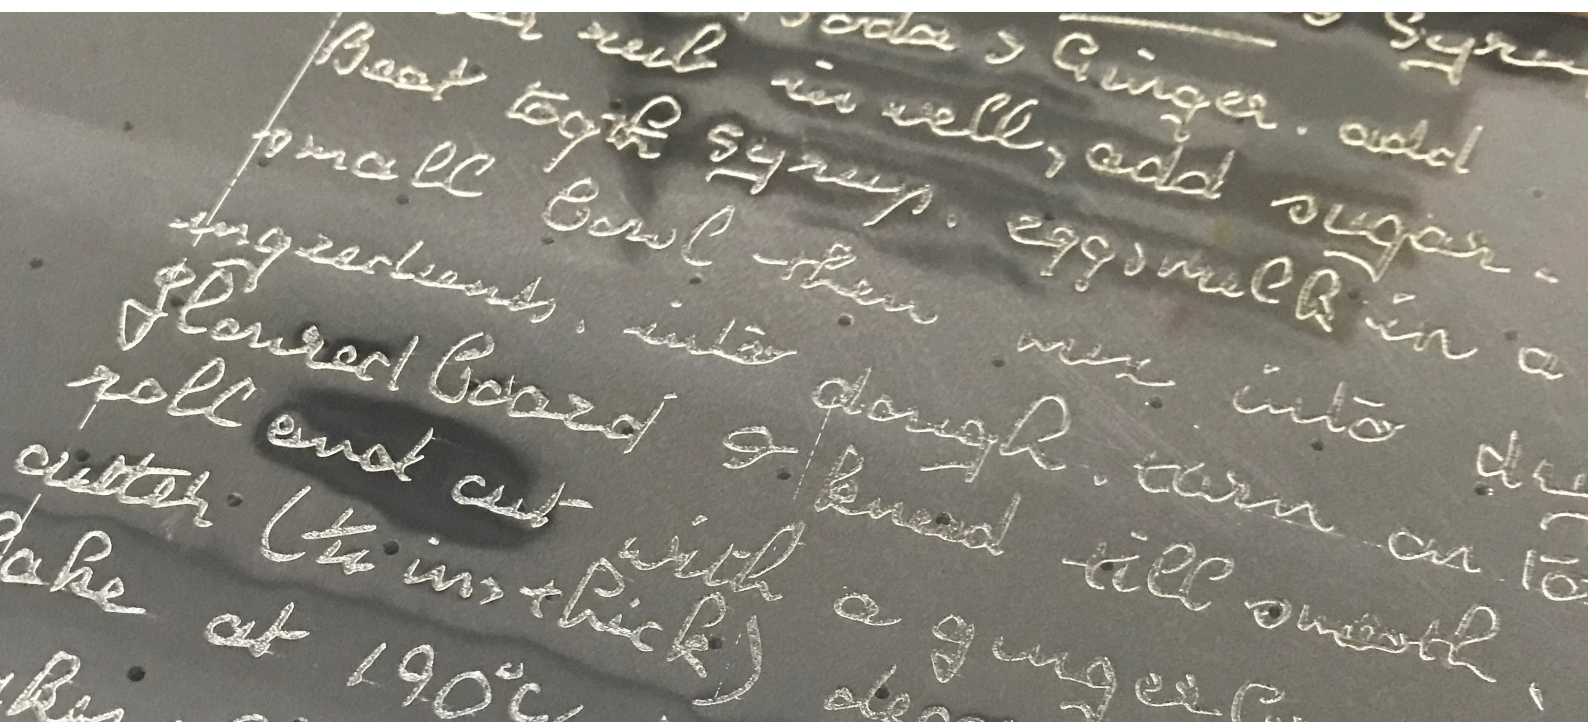 Syrup
Soda & Ginger. add
rub in well, add sugar -
Beat togth syrup. eggs, milk in a
small bowl then mix into
ingredients. into dough. turn on to
floured board & knead till smooth,
roll and cut with a
cutter ( in, thick)
at 190°C